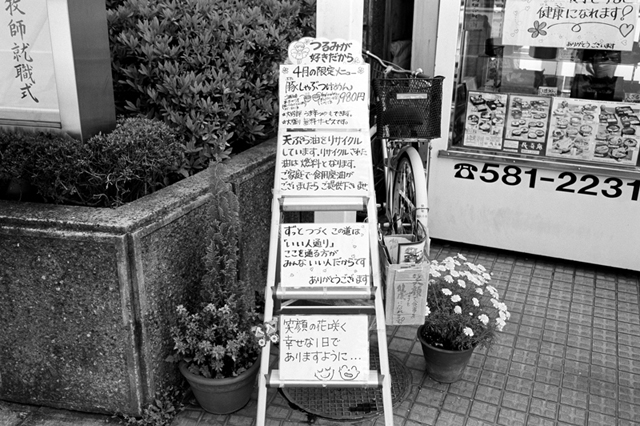 技師就職式
つるみが
好きだから
4月の限定メニュー
豚しゃぶつけめん
980円
天ぷら油をリサイクル
しています。リサイクルされた
油は燃料となります。
ご家庭で食用廃油が
ございましたらご提供下さいませ
ずっとつづくこの道は
"いい人通り"
ここを通る方が
みんないい人だからです
ありがとうございます
笑顔の花咲く
幸せな1日で
ありますように…
健康になれます!
ありがとうございます
☎581-2231